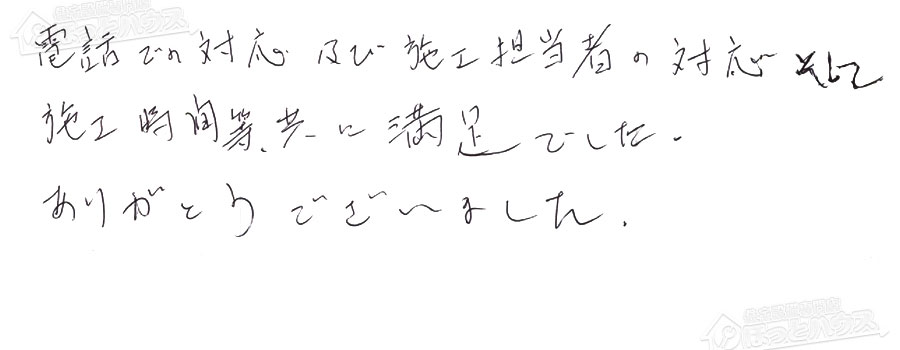 電話での対応 及び 施工担当者の対応 そして
施工時間等、共に満足でした。
ありがとうございました。
ほっとハウス
ほっとハウス